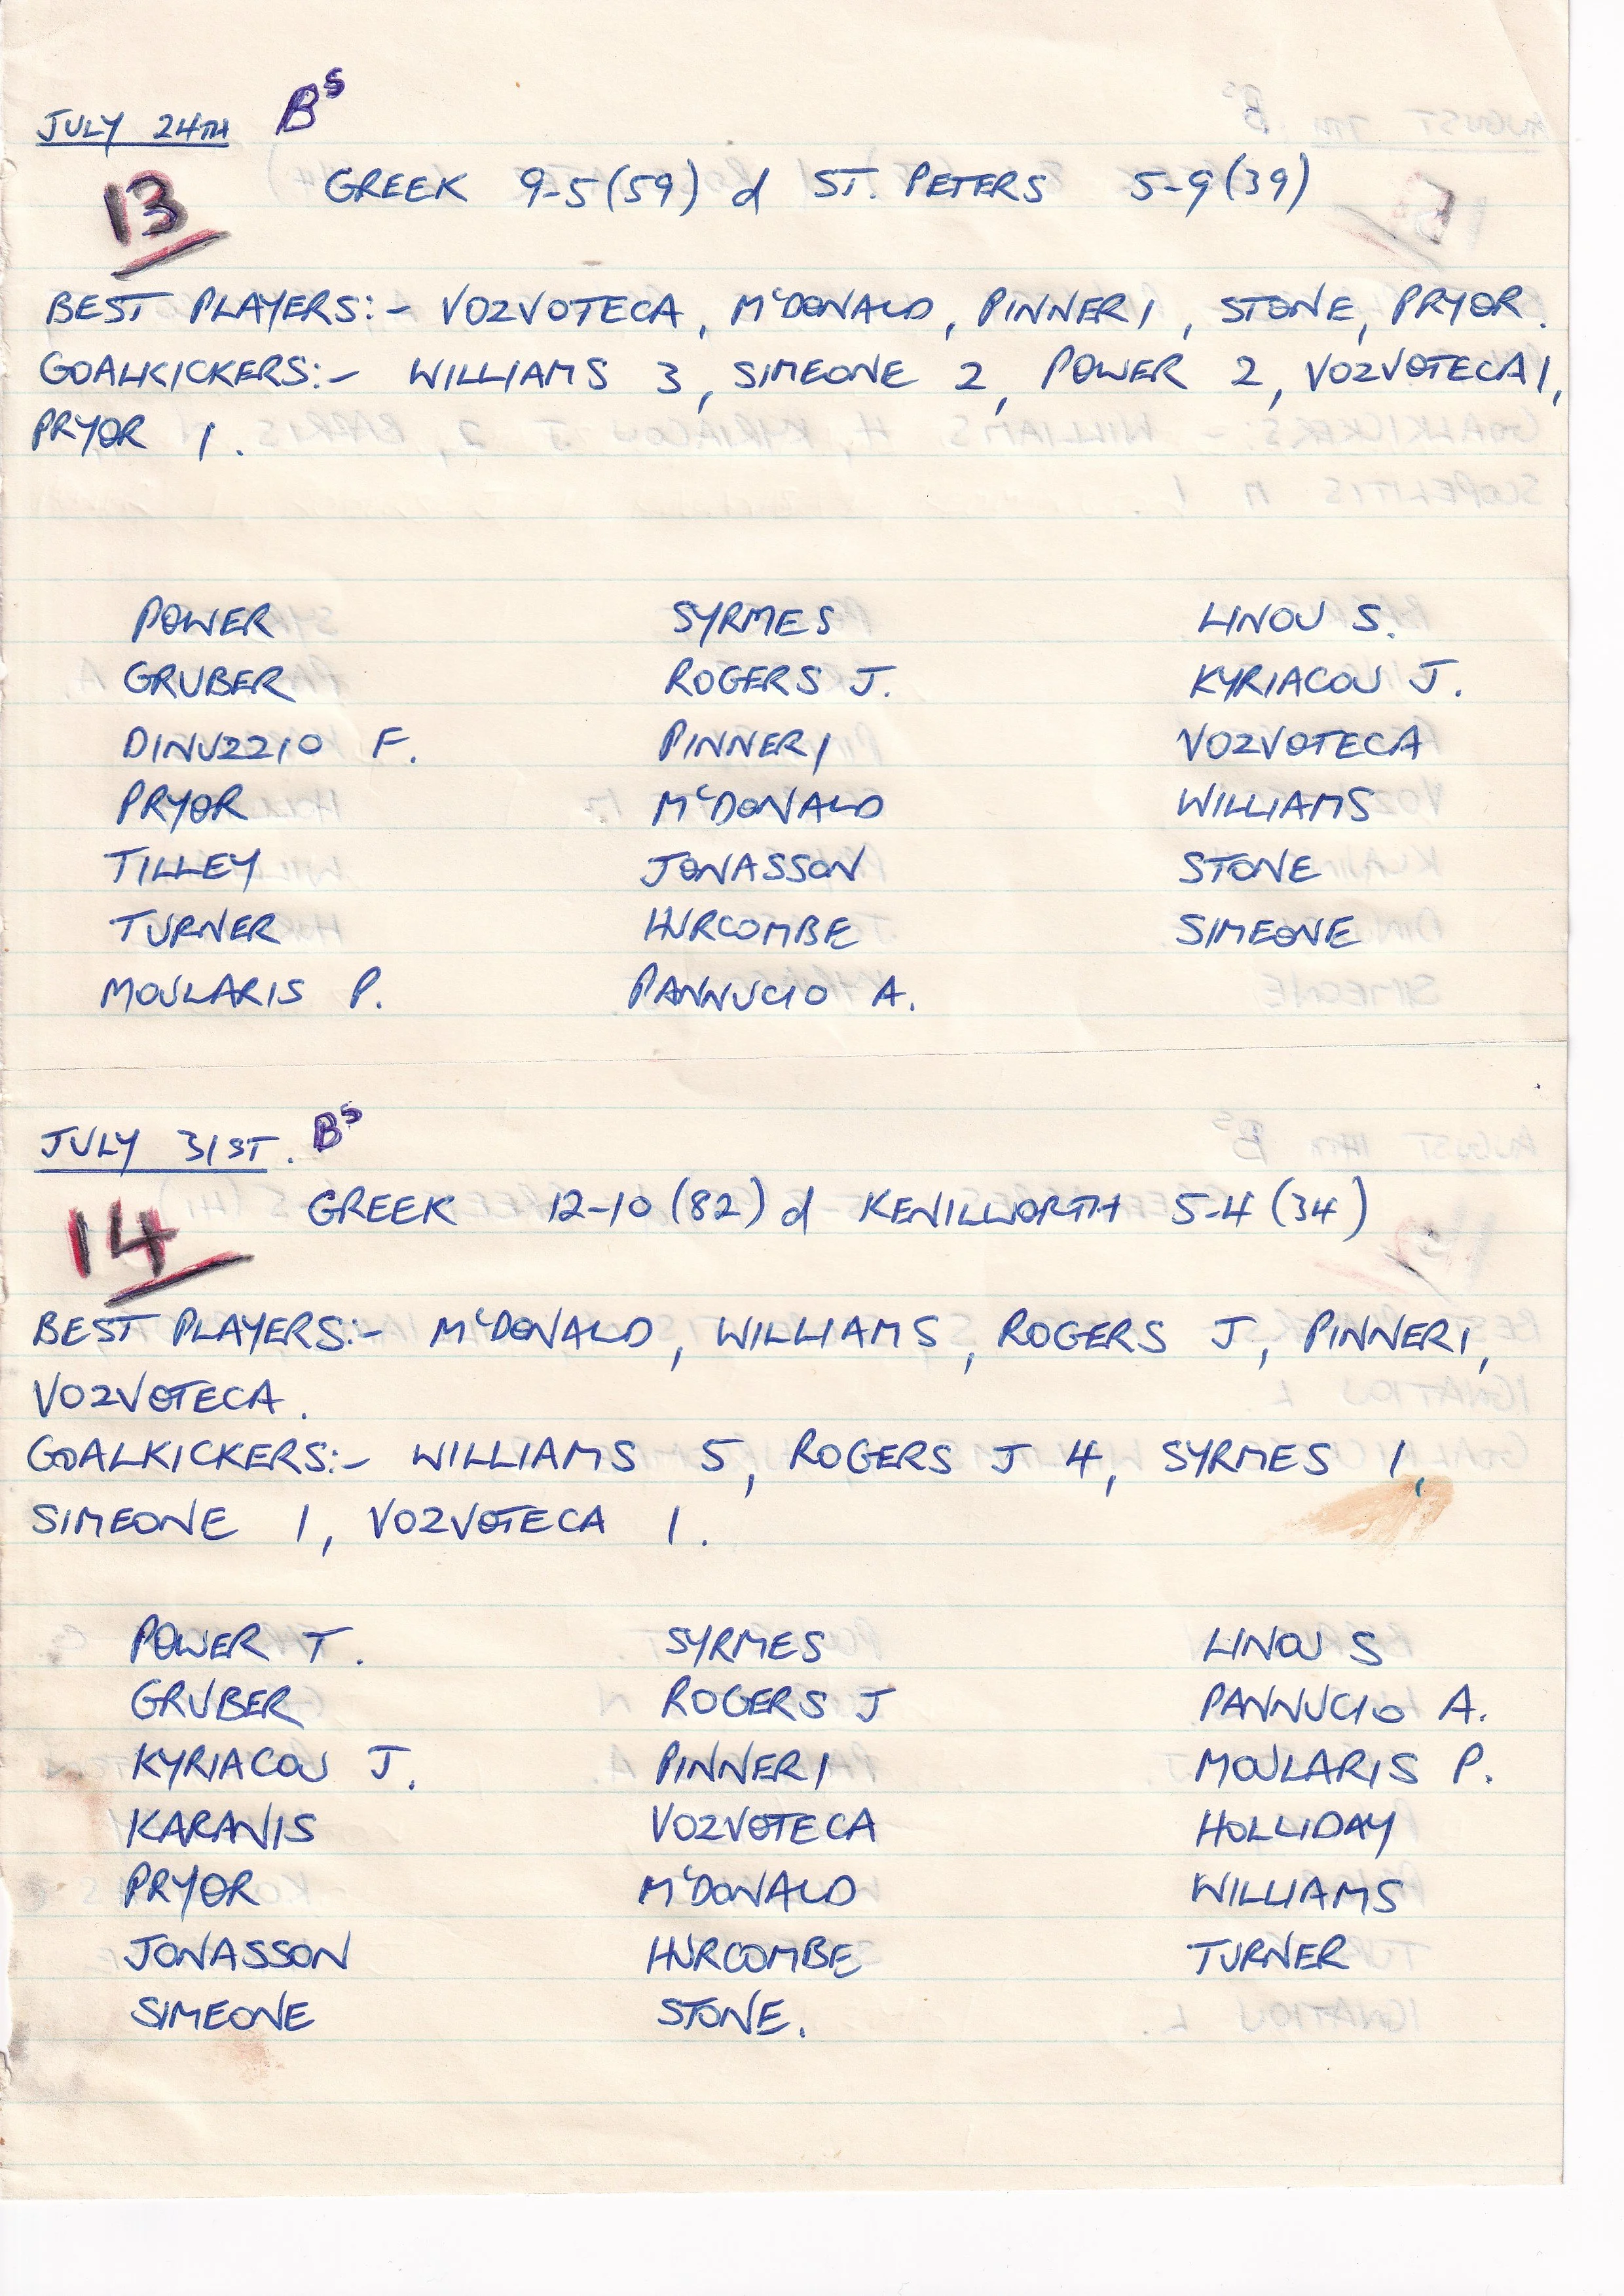 JULY 24TH BS
13 GREEK 9-5(59) d ST. PETERS 5-9(39)
BEST PLAYERS:- VOZVOTECA, McDONALD, PINNERI, STONE, PRYOR.
GOALKICKERS:- WILLIAMS 3, SIMEONE 2, POWER 2, VOZVOTECA 1,
PRYOR 1.
POWER SYRMES LINOU S.
GRUBER ROGERS J. KYRIACOU J.
DINUZZIO F. PINNERI VOZVOTECA
PRYOR McDONALD WILLIAMS
TILLEY JONASSON STONE
TURNER HURCOMBE SIMEONE
MOULARIS P. PANNUCIO A.
JULY 31ST. BS
14 GREEK 12-10(82) d KENILWORTH 5-4(34)
BEST PLAYERS:- McDONALD, WILLIAMS, ROGERS J, PINNERI,
VOZVOTECA.
GOALKICKERS:- WILLIAMS 5, ROGERS J 4, SYRMES 1,
SIMEONE 1, VOZVOTECA 1.
POWER T. SYRMES LINOU S
GRUBER ROGERS J PANNUCIO A.
KYRIACOU J. PINNERI MOULARIS P.
KARANIS VOZVOTECA HOLLIDAY
PRYOR McDONALD WILLIAMS
JONASSON HURCOMBE TURNER
SIMEONE STONE.